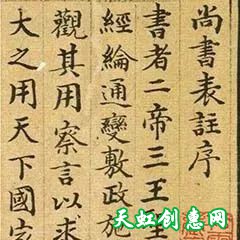 尚書表註序
書者二帝三王聖
經綸通變敷政施
觀其用察言以求
大之用天下國家
天虹创意网